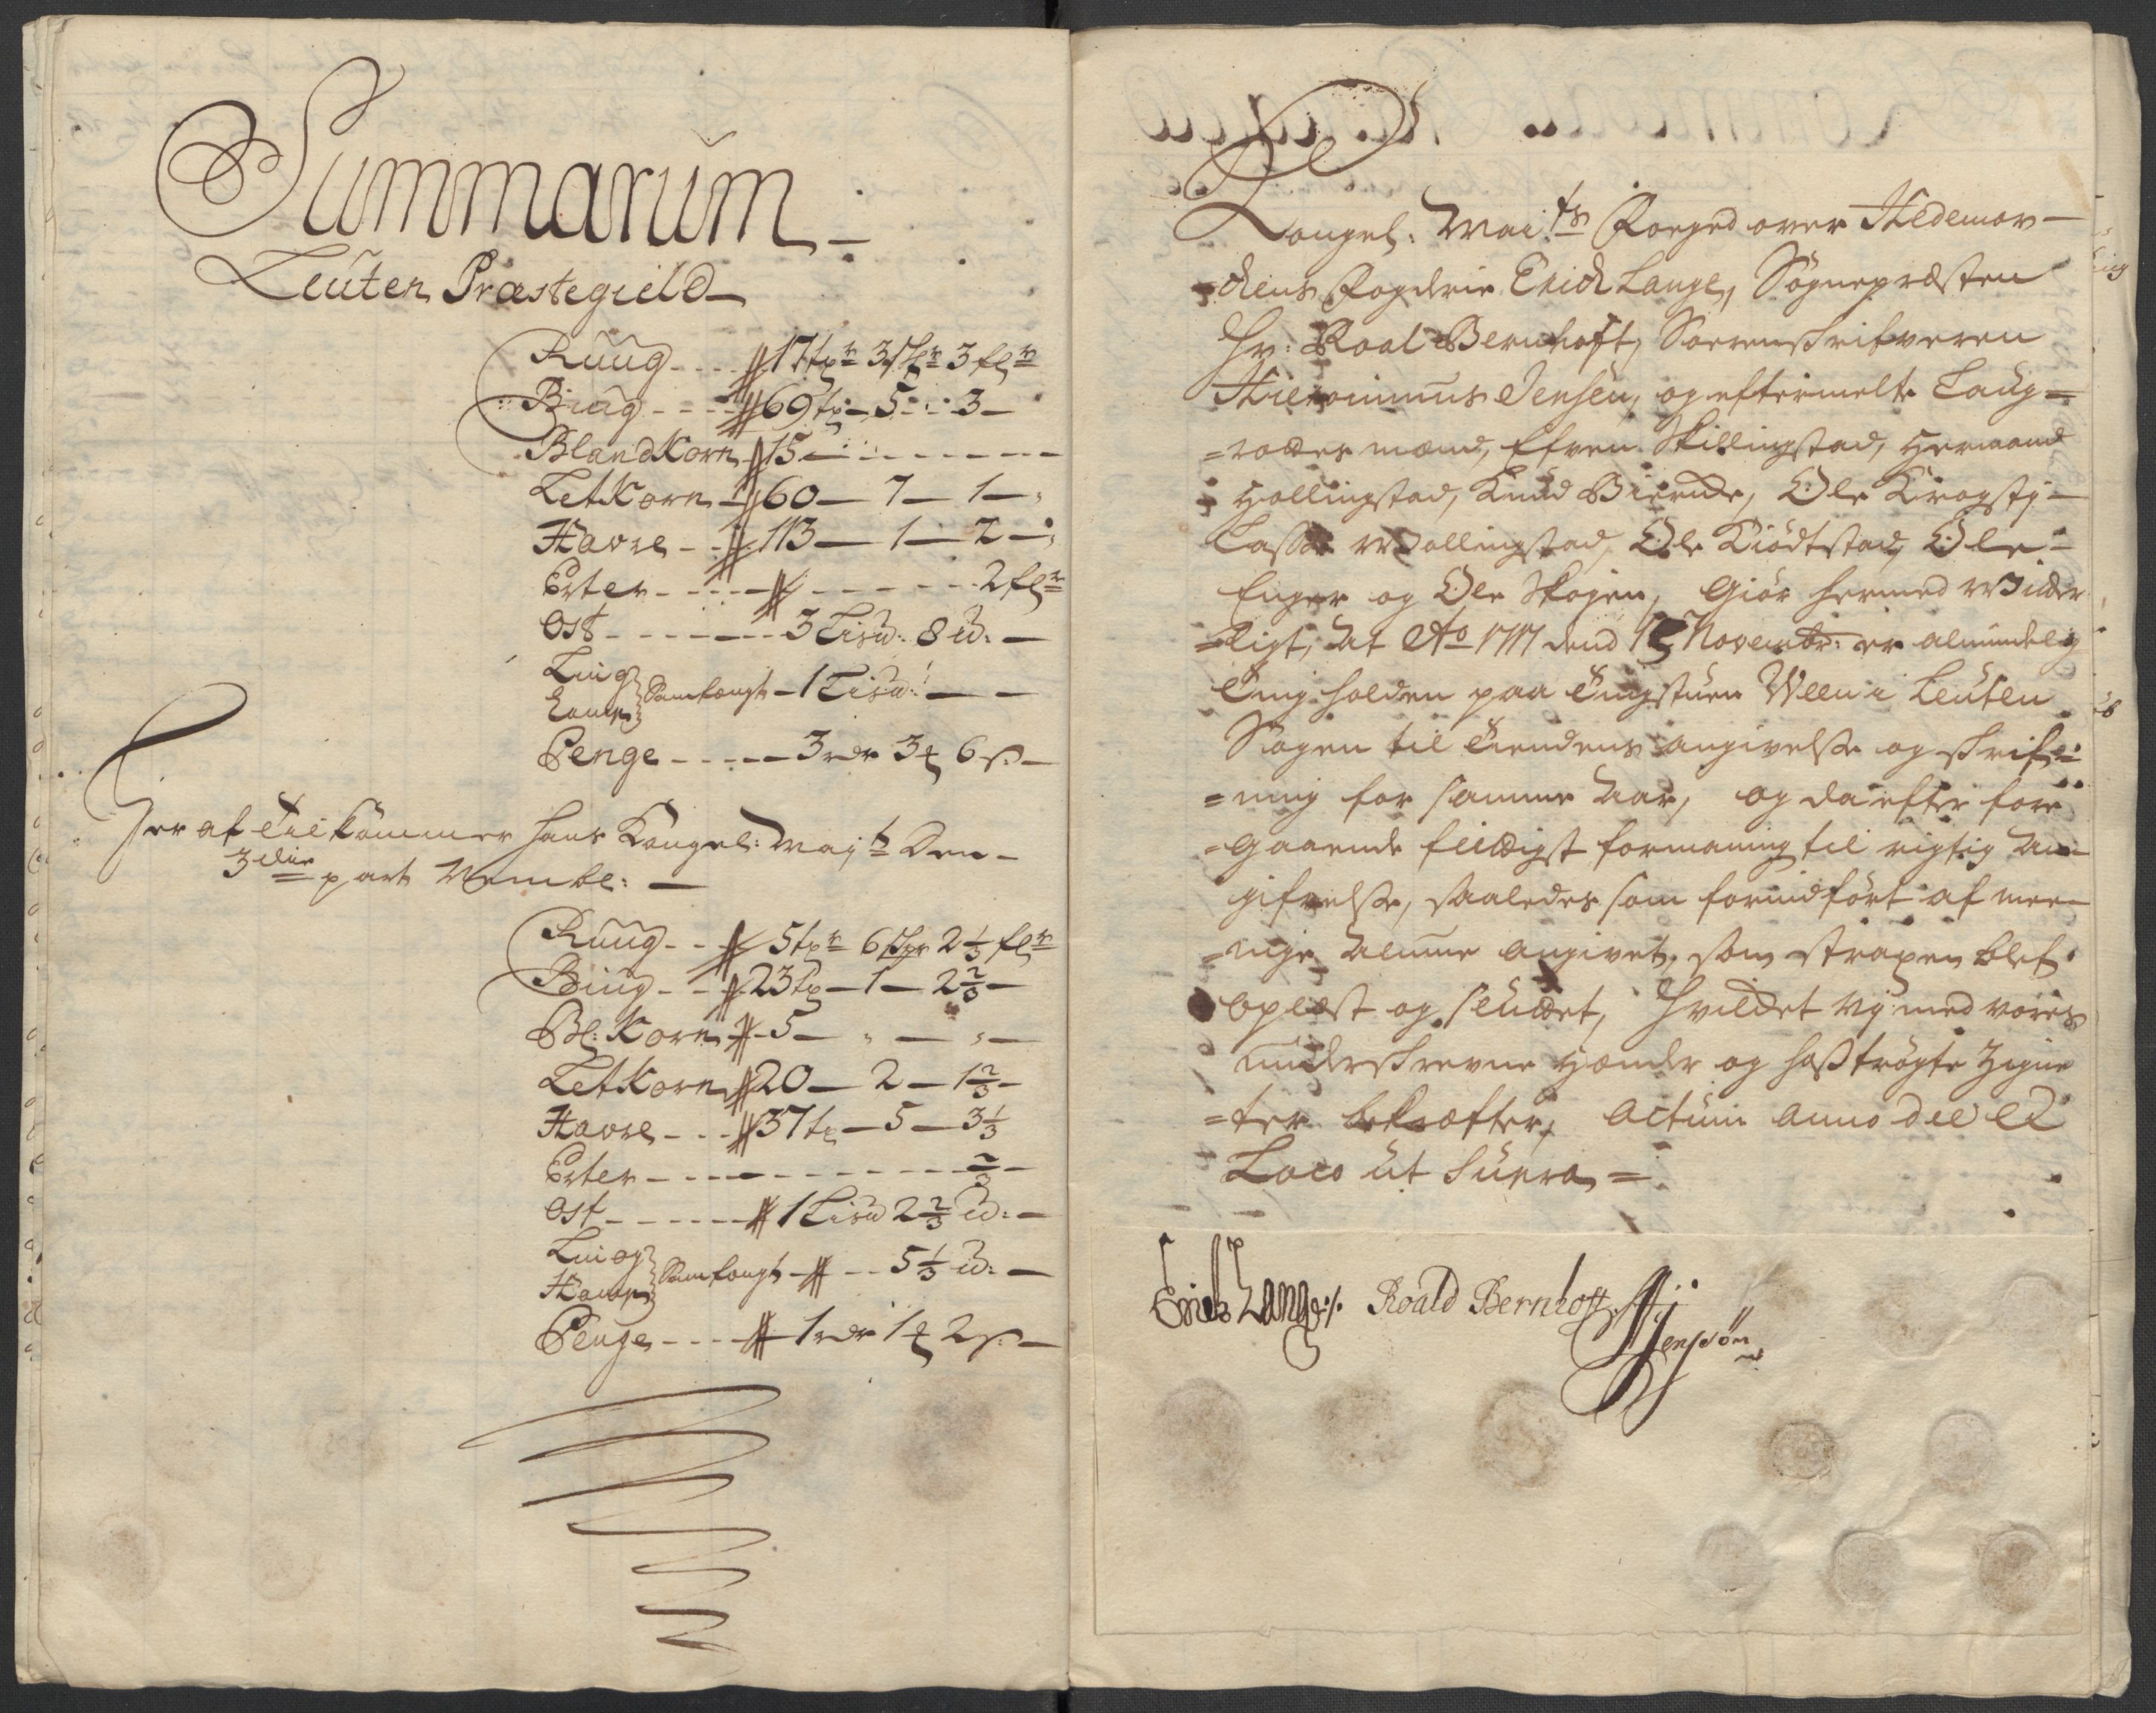 Summarum
Leuten Præstegield
Ruug - - - 17 tr 3 Skr 3 flr
Biug - - - 69 t - 5 - 3 -
Bland Korn 15 - - - - - -
Let Korn - 60 - 7 - 1 -
Havre - - 113 - 1 - 2 -
Erter - - - - - - - 2 flr
Ost - - - - - 3 Lisđ: 8 đ: -
Liin og
Hamp Samfengt - 1 Lisđ: - -
Penge - - - - 3 rdr 3 6 s -
Her af Tilkommer Hans Kongel: Mayts Den -
3die part Nembl: -
Ruug - - 5 tr 6 Skr 2 1/3 flr
Biug - - 23 t - 1 - 2 2/3 -
Bl: Korn - 5 - " - " -
Let Korn 20 - 2 - 1 2/3 -
Havre - - - 37 t - 5 - 3 1/3
Erter - - - - - - - - 2/3 -
Ost - - - - - 1 Lisđ 2 2/3 đ: -
Liin og
Hamp Samfengt - - - 5 1/3 đ: -
Penge - - - - 1 rdr 1 2 s -
Kongel: Maits Foeged over Hedemar-
-chens Fogderie Erich Lange, Sognepræsten
Hr: Roal Bernhoft, Sorenskrifveren
Hieronimus Jensen, og eftermelte Laug=
=rættes mænd, Efven Skillingstad, Hermand
Hollingstad, Knud Biørnde, Ole Krogsti-
Lasse Wollingstad, Ole Kiødtstad, Ole-
Enger og Ole Skogen, Giør hermed Witter
=ligt, At Ao 1717 dend Novembr: er almindelig
Ting holden paa Tingstuen Ween i Leuten
Sogen til Tiendens angivelse og skrif=
=ning for samme Aar, og da efter fore
=gaaende flitigst formaning til rigtig An-
gifvelse, saaledes som forindført af mee-
=nige Almue angivet, som straxen blef
oplæst og sluttet, Hvilcket vj med vores
underskrevne Hænder og hostrøgte Zigne
=ter bekræfter, Actum anno die et
Loco ut Supra =
Erich Lange Roald Bernhoft H Jensøn